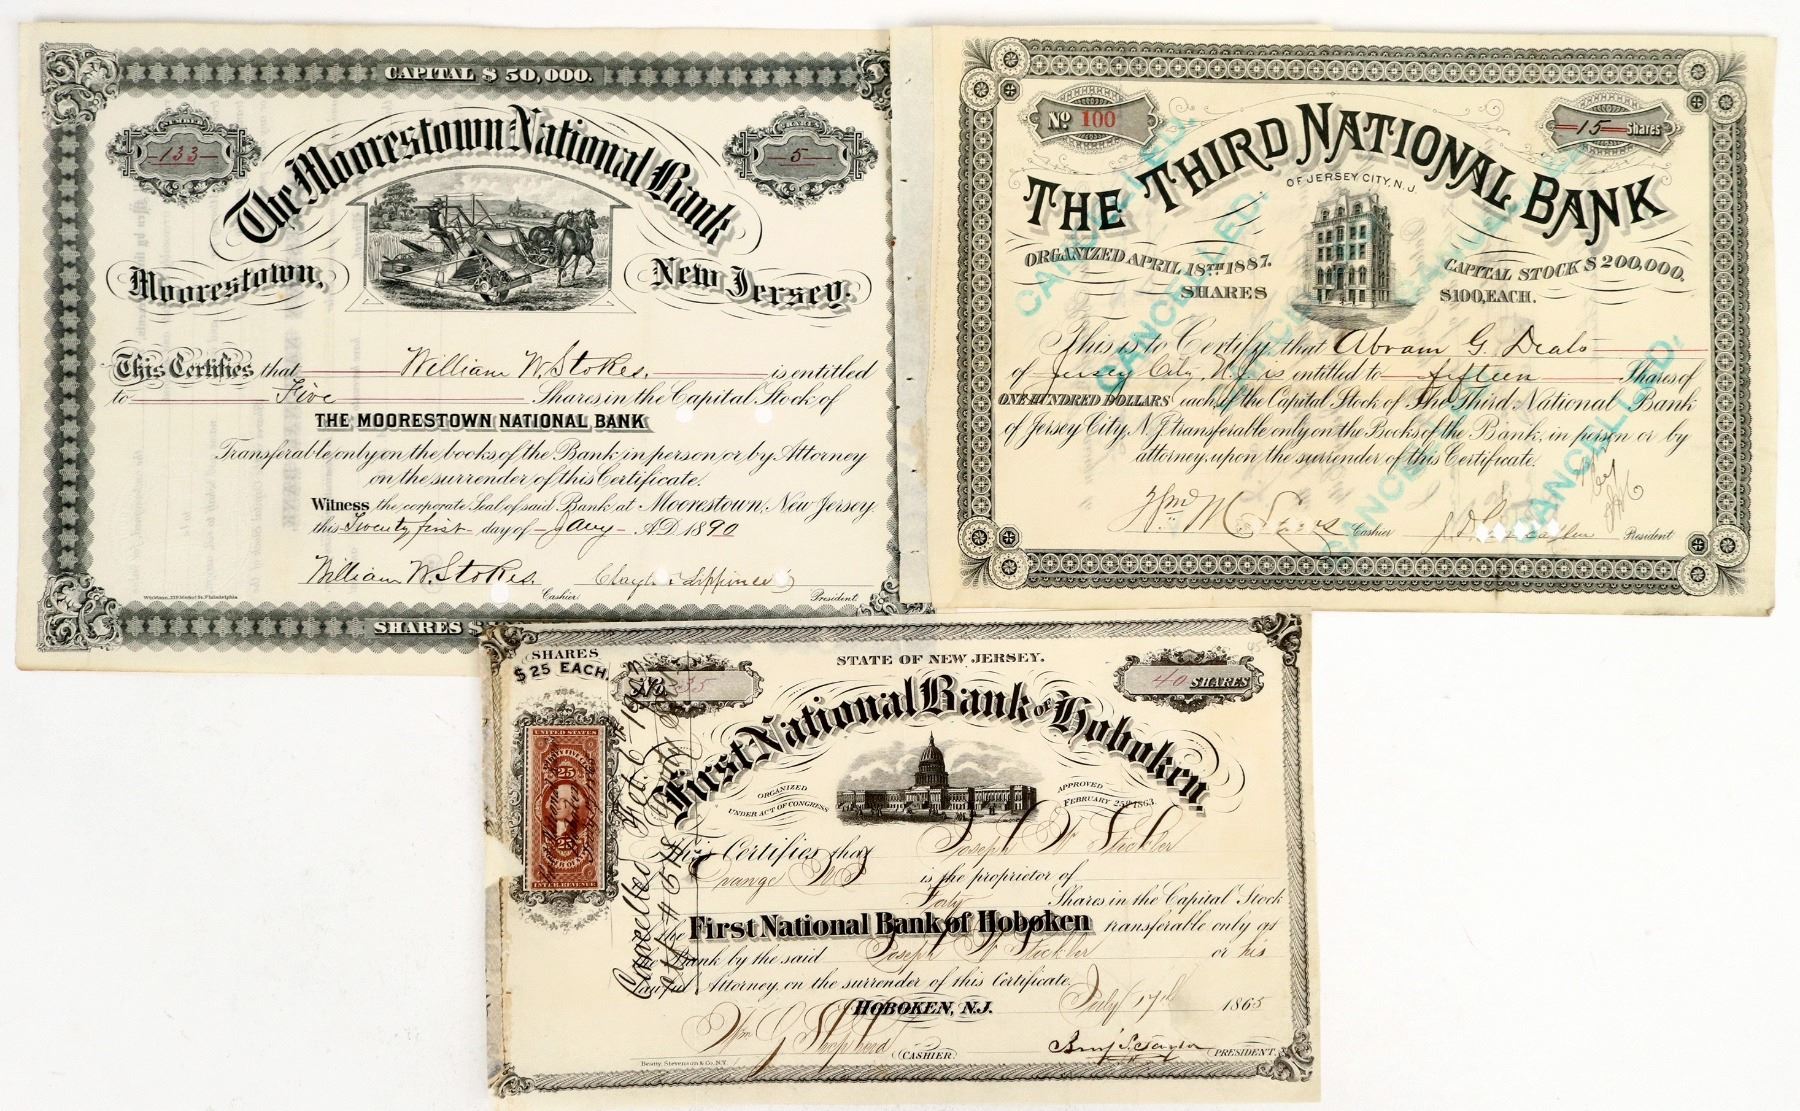 CAPITAL $ 50,000.
NUMBER
133
SHARES
5
The Moorestown National Bank
Moorestown, New Jersey.
This Certifies that William W. Stokes. is entitled
to Five Shares in the Capital Stock of
THE MOORESTOWN NATIONAL BANK
Transferable only on the books of the Bank in person or by Attorney
on the surrender of this Certificate.
Witness the corporate Seal of said Bank at Moorestown, New Jersey
this Twenty first day of A.D. 1890
William W. Stokes.
Cashier President
SHARES $
No 100
15 Shares
THE THIRD NATIONAL BANK
OF JERSEY CITY, N.J.
ORGANIZED APRIL 18TH 1887. CAPITAL STOCK $ 200,000.
SHARES $100, EACH.
This is to Certify that Abram G.
of Jersey City, N.J. is entitled to fifteen Shares of
ONE HUNDRED DOLLARS each, of the Capital Stock of The Third National Bank
of Jersey City N.J. transferable only on the Books of the Bank, in person or by
attorney, upon the surrender of this Certificate.
Cashier President
CANCELLED.
CANCELLED.
CANCELLED.
CANCELLED.
SHARES
$ 25 EACH.
No 335
STATE OF NEW JERSEY.
40 SHARES
First National Bank of Hoboken,
ORGANIZED
UNDER ACT OF CONGRESS
APPROVED
FEBRUARY 25th 1863.
UNITED STATES
25
25
INTER. REVENUE
Cancelled Feb. 6
This Certifies that Joseph W Stickler
Orange N J is the proprietor of
Forty Shares in the Capital Stock
of the First National Bank of Hoboken transferable only at
the Bank by the said Joseph W Stickler or his
lawful Attorney, on the surrender of this Certificate.
HOBOKEN, N.J. July 17th 1865
CASHIER. Benj S. Taylor PRESIDENT.
Beatty Stevenson & Co. N.Y.